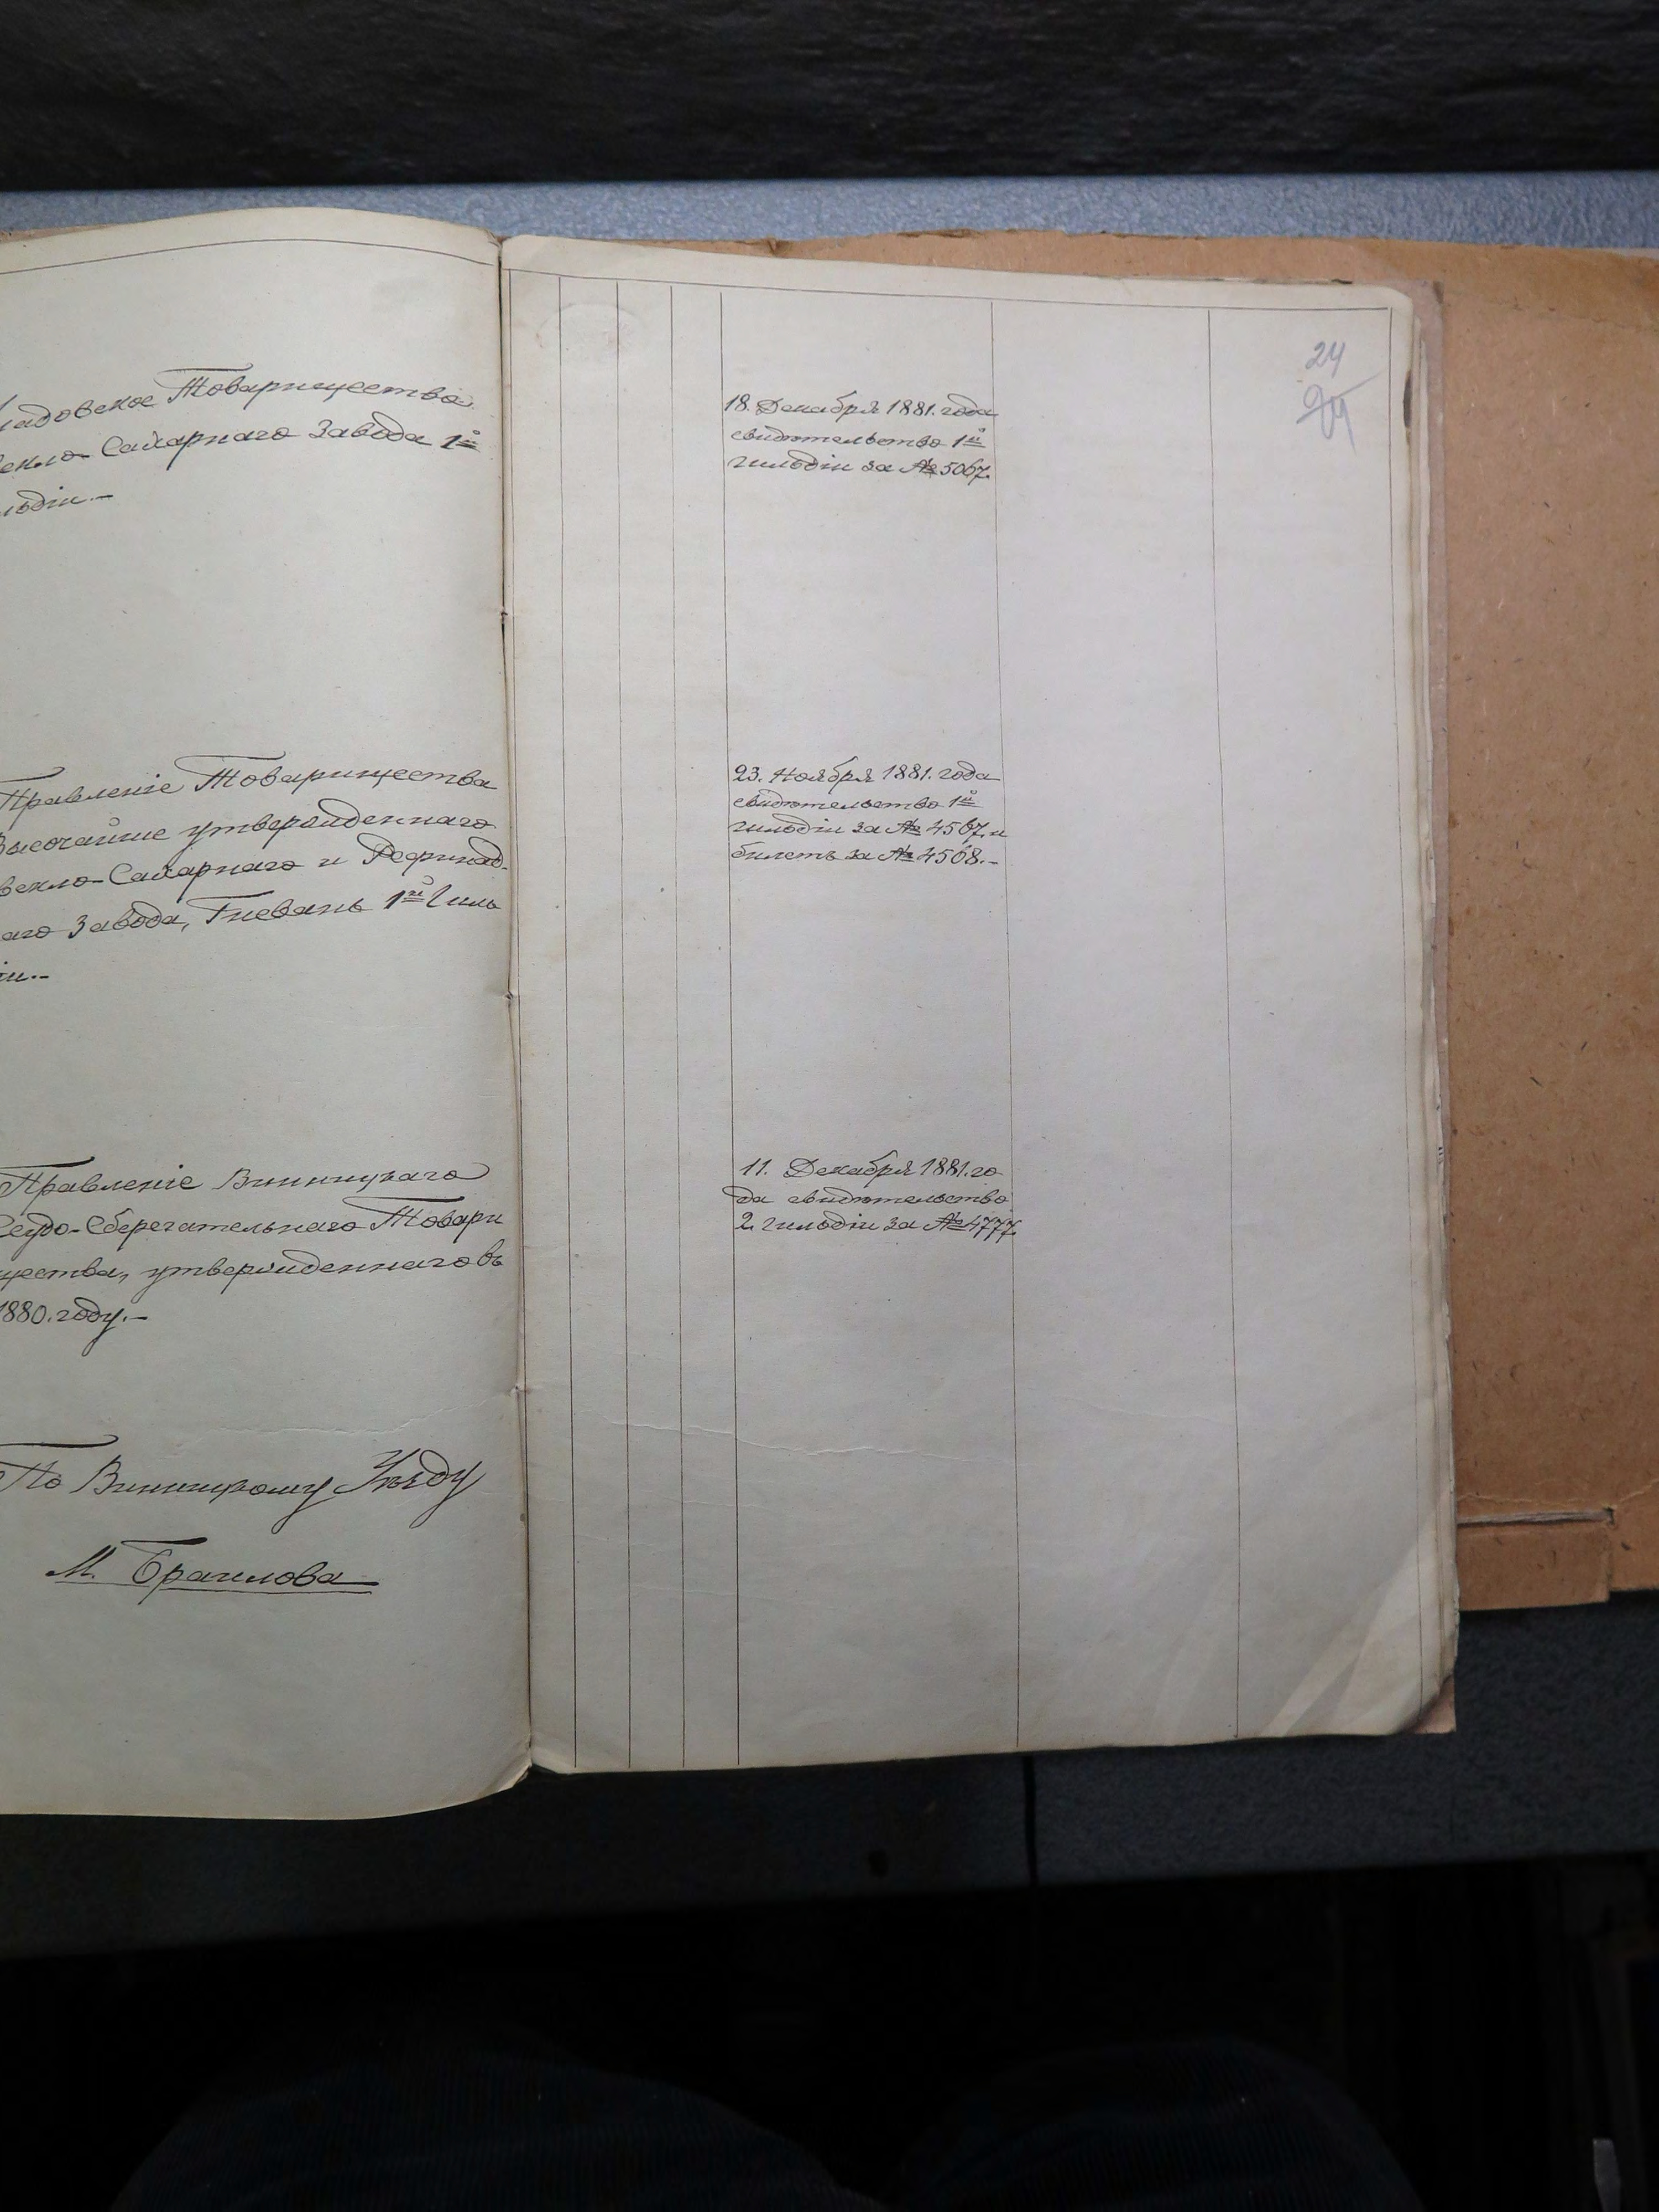 ладовское Товарищество
екло-Сахарнаго Завода 1й
льдіи.–
Правленіе Товарищества
Высочайше утвержденнаго
векло-Сахарнаго и Рафинад-
аго Завода, Гневань 1й Гиль
іи.–
Правленіе Винницкаго
Ссудо-Сберегательнаго Товари
щества, утвержденнаго въ
1880. году.–
По Винницкому Уѣзду
М. Браилова
24
24
18. Декабря 1881. года
свидѣтельство 1й
гильдіи за № 5067.
23. Ноября 1881. года
свидѣтельство 1й
гильдіи за № 4567. и
билетъ за № 4568.–
11. Декабря 1881. го
да свидѣтельство
2. гильдіи за № 4777.